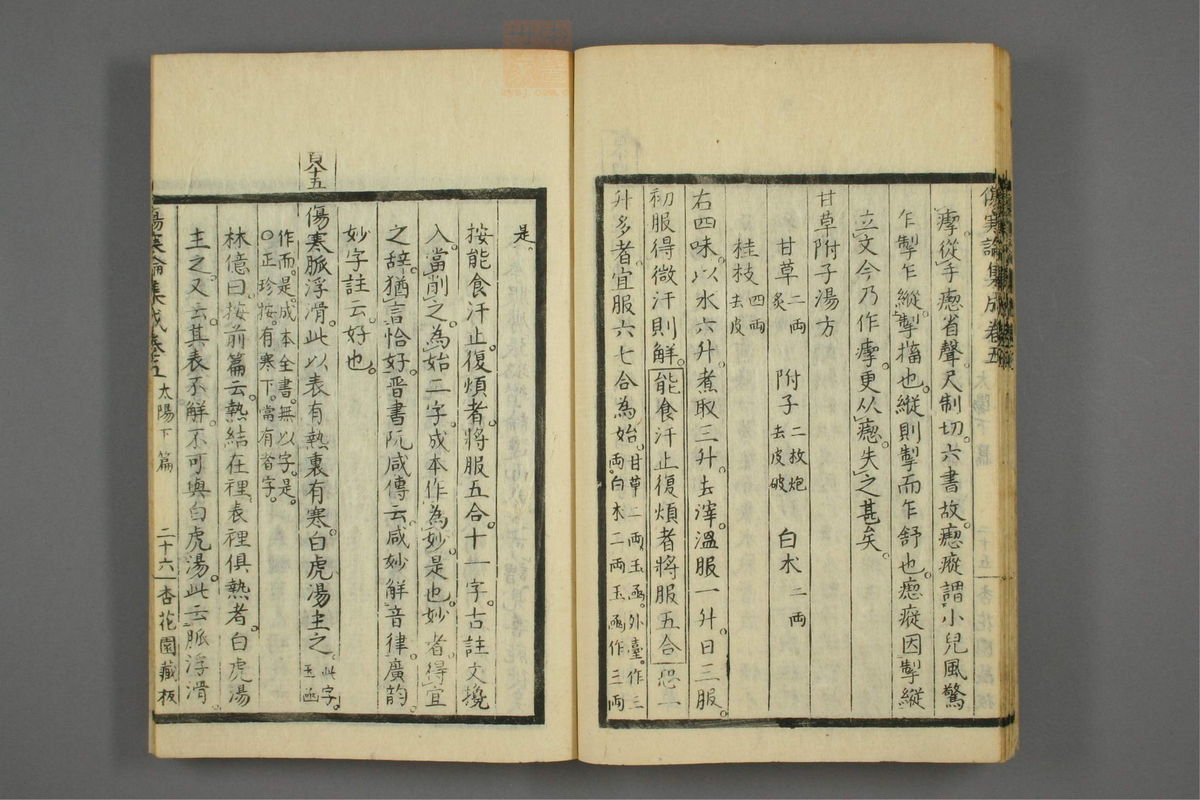 傷寒論集成卷五
瘳從手瘛省聲尺制切六書故瘛瘲謂小兒風驚
乍掣乍縱掣搐也縱則掣而乍舒也瘛瘲因掣縱
立文今乃作瘳更从瘛失之甚矣
甘草附子湯方
甘草二兩炙 附子二枚炮去皮破 白朮二兩
桂枝四兩去皮
右四味以水六升煮取三升去滓溫服一升日三服
初服得微汗則解能食汗止復煩者將服五合恐一
升多者宜服六七合為始甘草二兩玉函外臺作三兩白朮二兩玉函作三兩
是
按能食汗止復煩者將服五合十一字古註文攙
入當削之為始二字成本作為妙是也妙者得宜
之辞猶言恰好晋書阮咸傳云咸妙解音律廣韵
妙字註云好也
頁十五
傷寒脈浮滑此以表有熱裏有寒白虎湯主之此字玉函
作而是成本全書無以字是
○正珍按有寒下當有者字
林億曰按前篇云熱結在裡表裡俱熱者白虎湯
主之又云其表不解不可與白虎湯此云脈浮滑
傷寒論集成卷五 太陽下篇 二十六 杏花園藏板